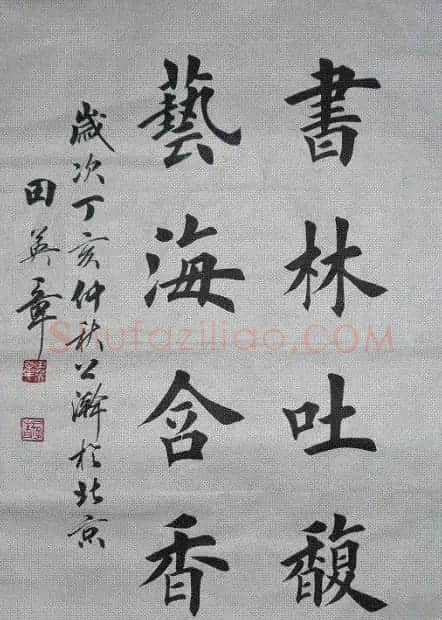 書林吐馥
藝海含香
歲次丁亥仲秋公瀚於北京
田英章
Shufaziliao.com